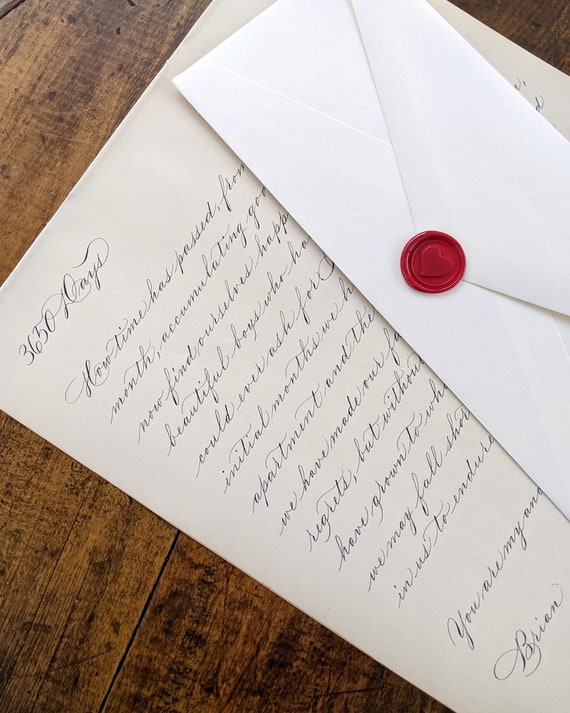 3650 Days
How time has passed, from
month, accumulating goo
now find ourselves happ
beautiful boys who ha
could ever ask for
initial months we h
apartment and the
we have made our fa
regrets, but without
have grown to wh
we may fall shor
in us to endur
You are my ang
Brian